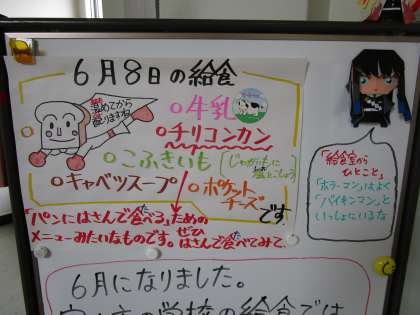 6月8日の給食
温めてから
配りますね
○牛乳
○チリコンカン
○こふきいも
じゃがいもに
塩とこしょう
○キャベツスープ
○ポケット
チーズ
です
「パンにはさんで食べる」ための
メニューみたいなものです。ぜひはさんで食べてみて。
「給食室から
ひとこと」
「ホラーマン」はよく
「バイキンマン」と
いっしょにいるな
6月になりました。